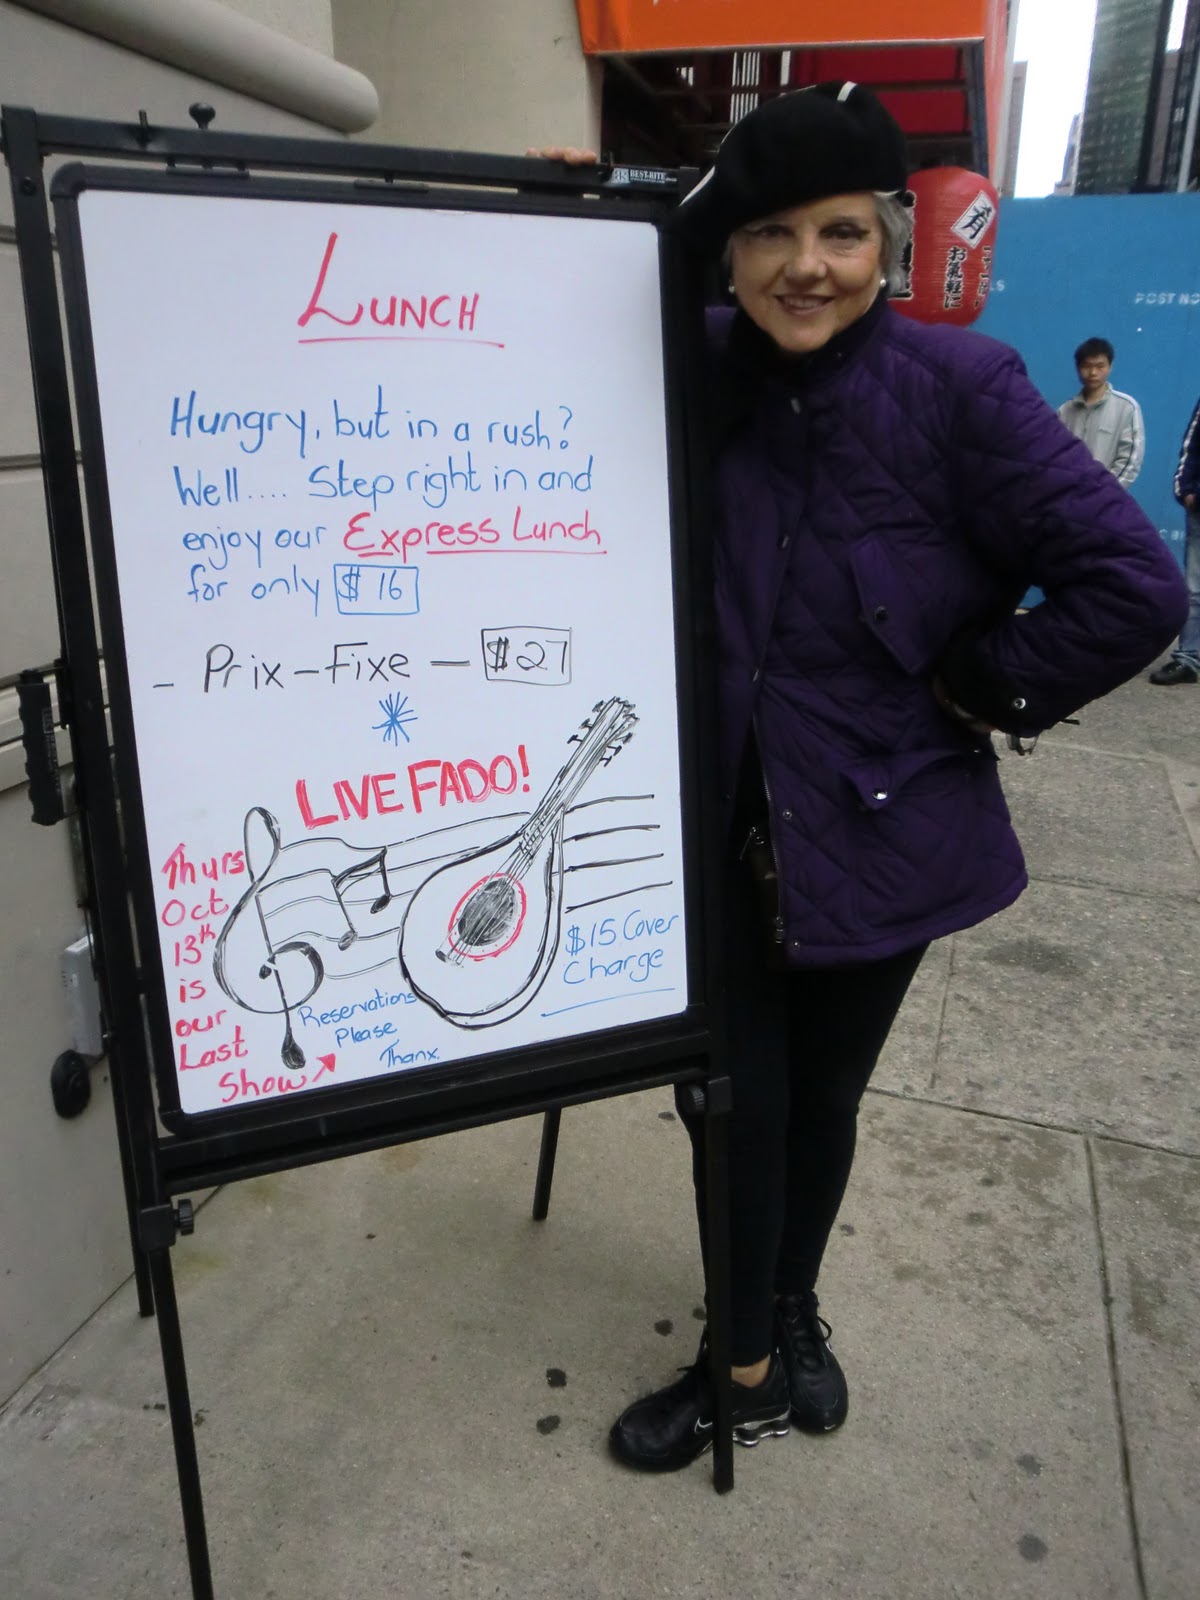 BEST-RITE
LUNCH
Hungry, but in a rush?
Well.... Step right in and
enjoy our Express Lunch
for only $16
- Prix-Fixe - $27
LIVE FADO!
Thurs
Oct
13th
is
our
Last
Show
Reservations
Please
Thanx.
$15 Cover
Charge
お気軽に
POST NO